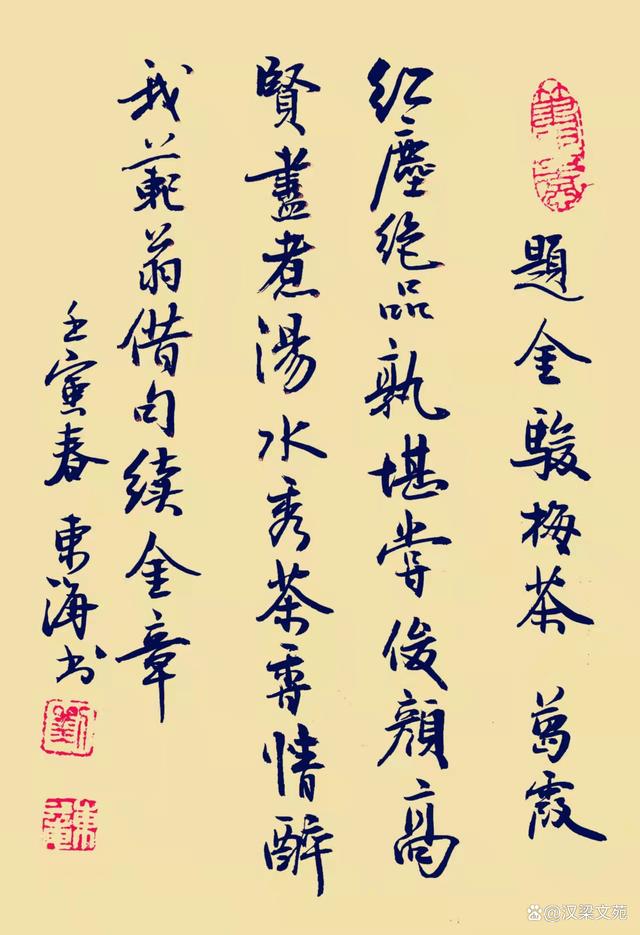 題金駿梅茶 葛霞
红塵绝品孰堪尝俊顏高
賢盡煮湯水秀茶香情醉
我範翁借句续金章
壬寅春 東海书
@汉梁文苑